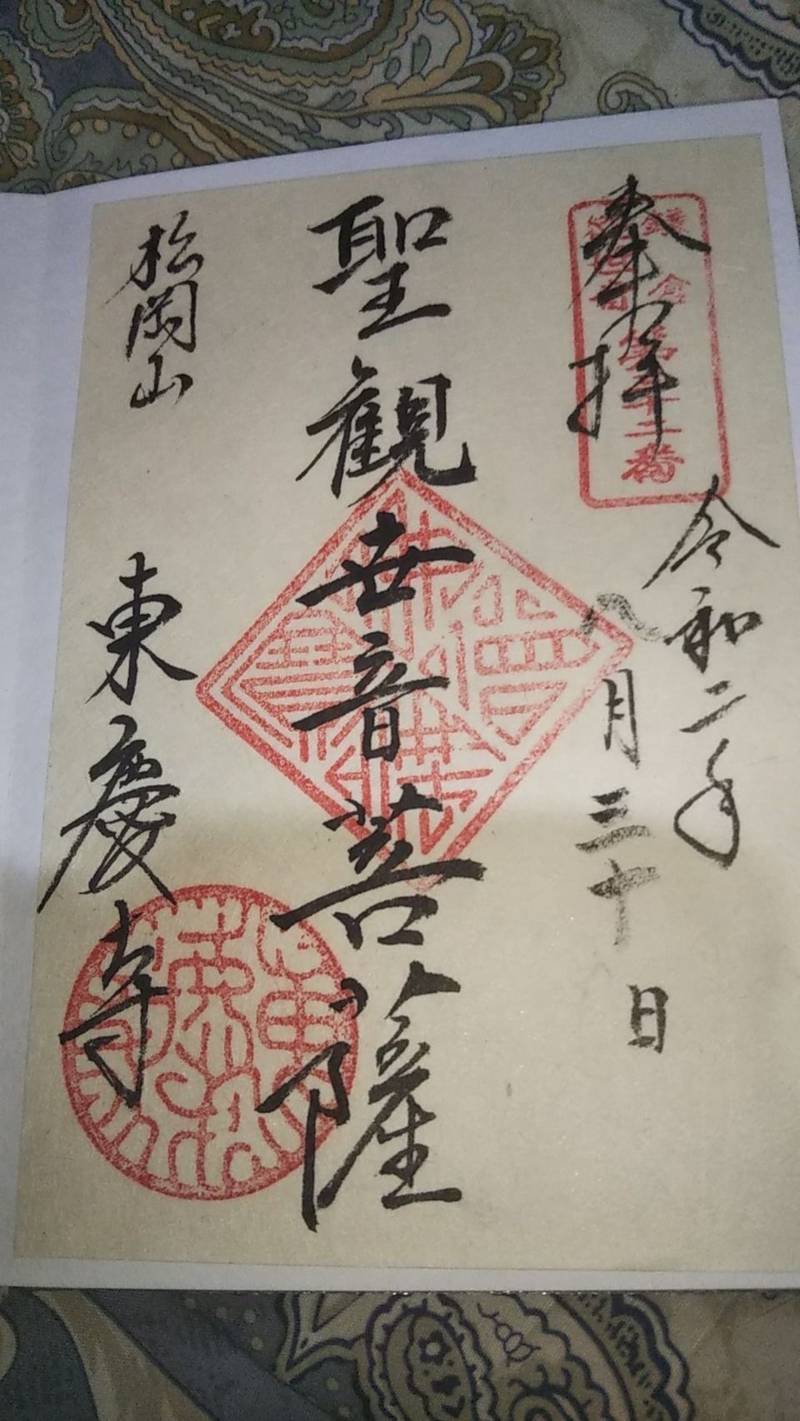 奉拝
令和二年
八月三十日
聖觀世音菩薩
松岡山
東慶寺